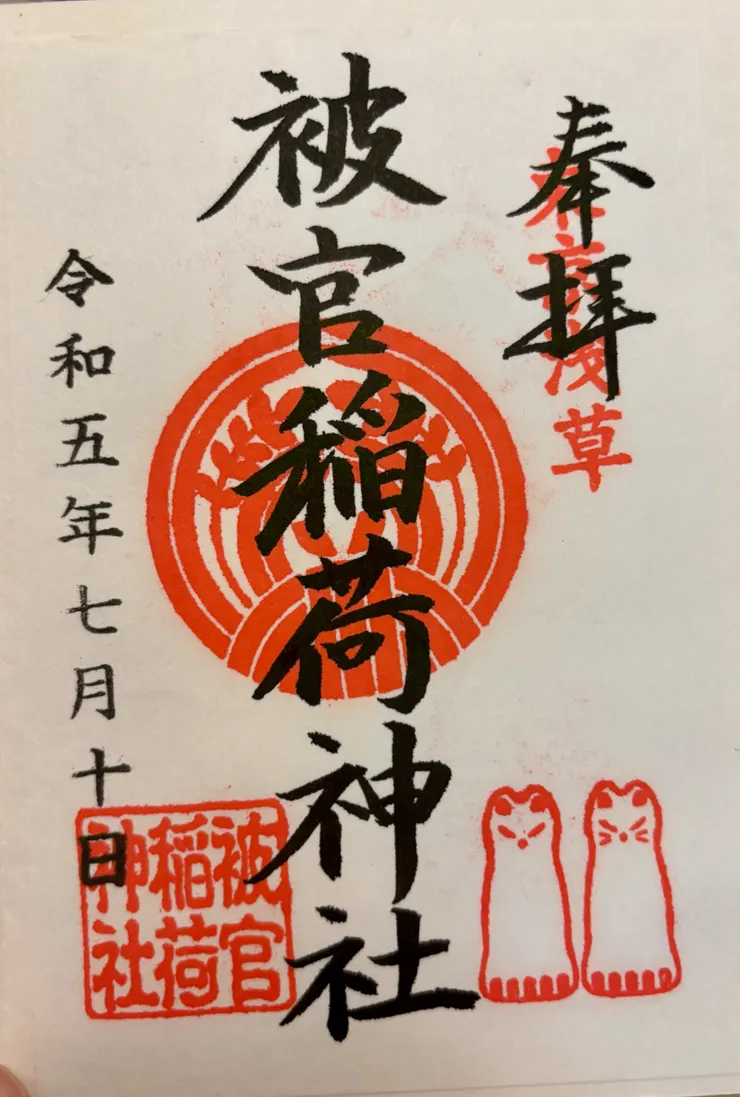 奉拝
東京浅草
被官稲荷神社
令和五年七月十日
被官
稲荷
神社